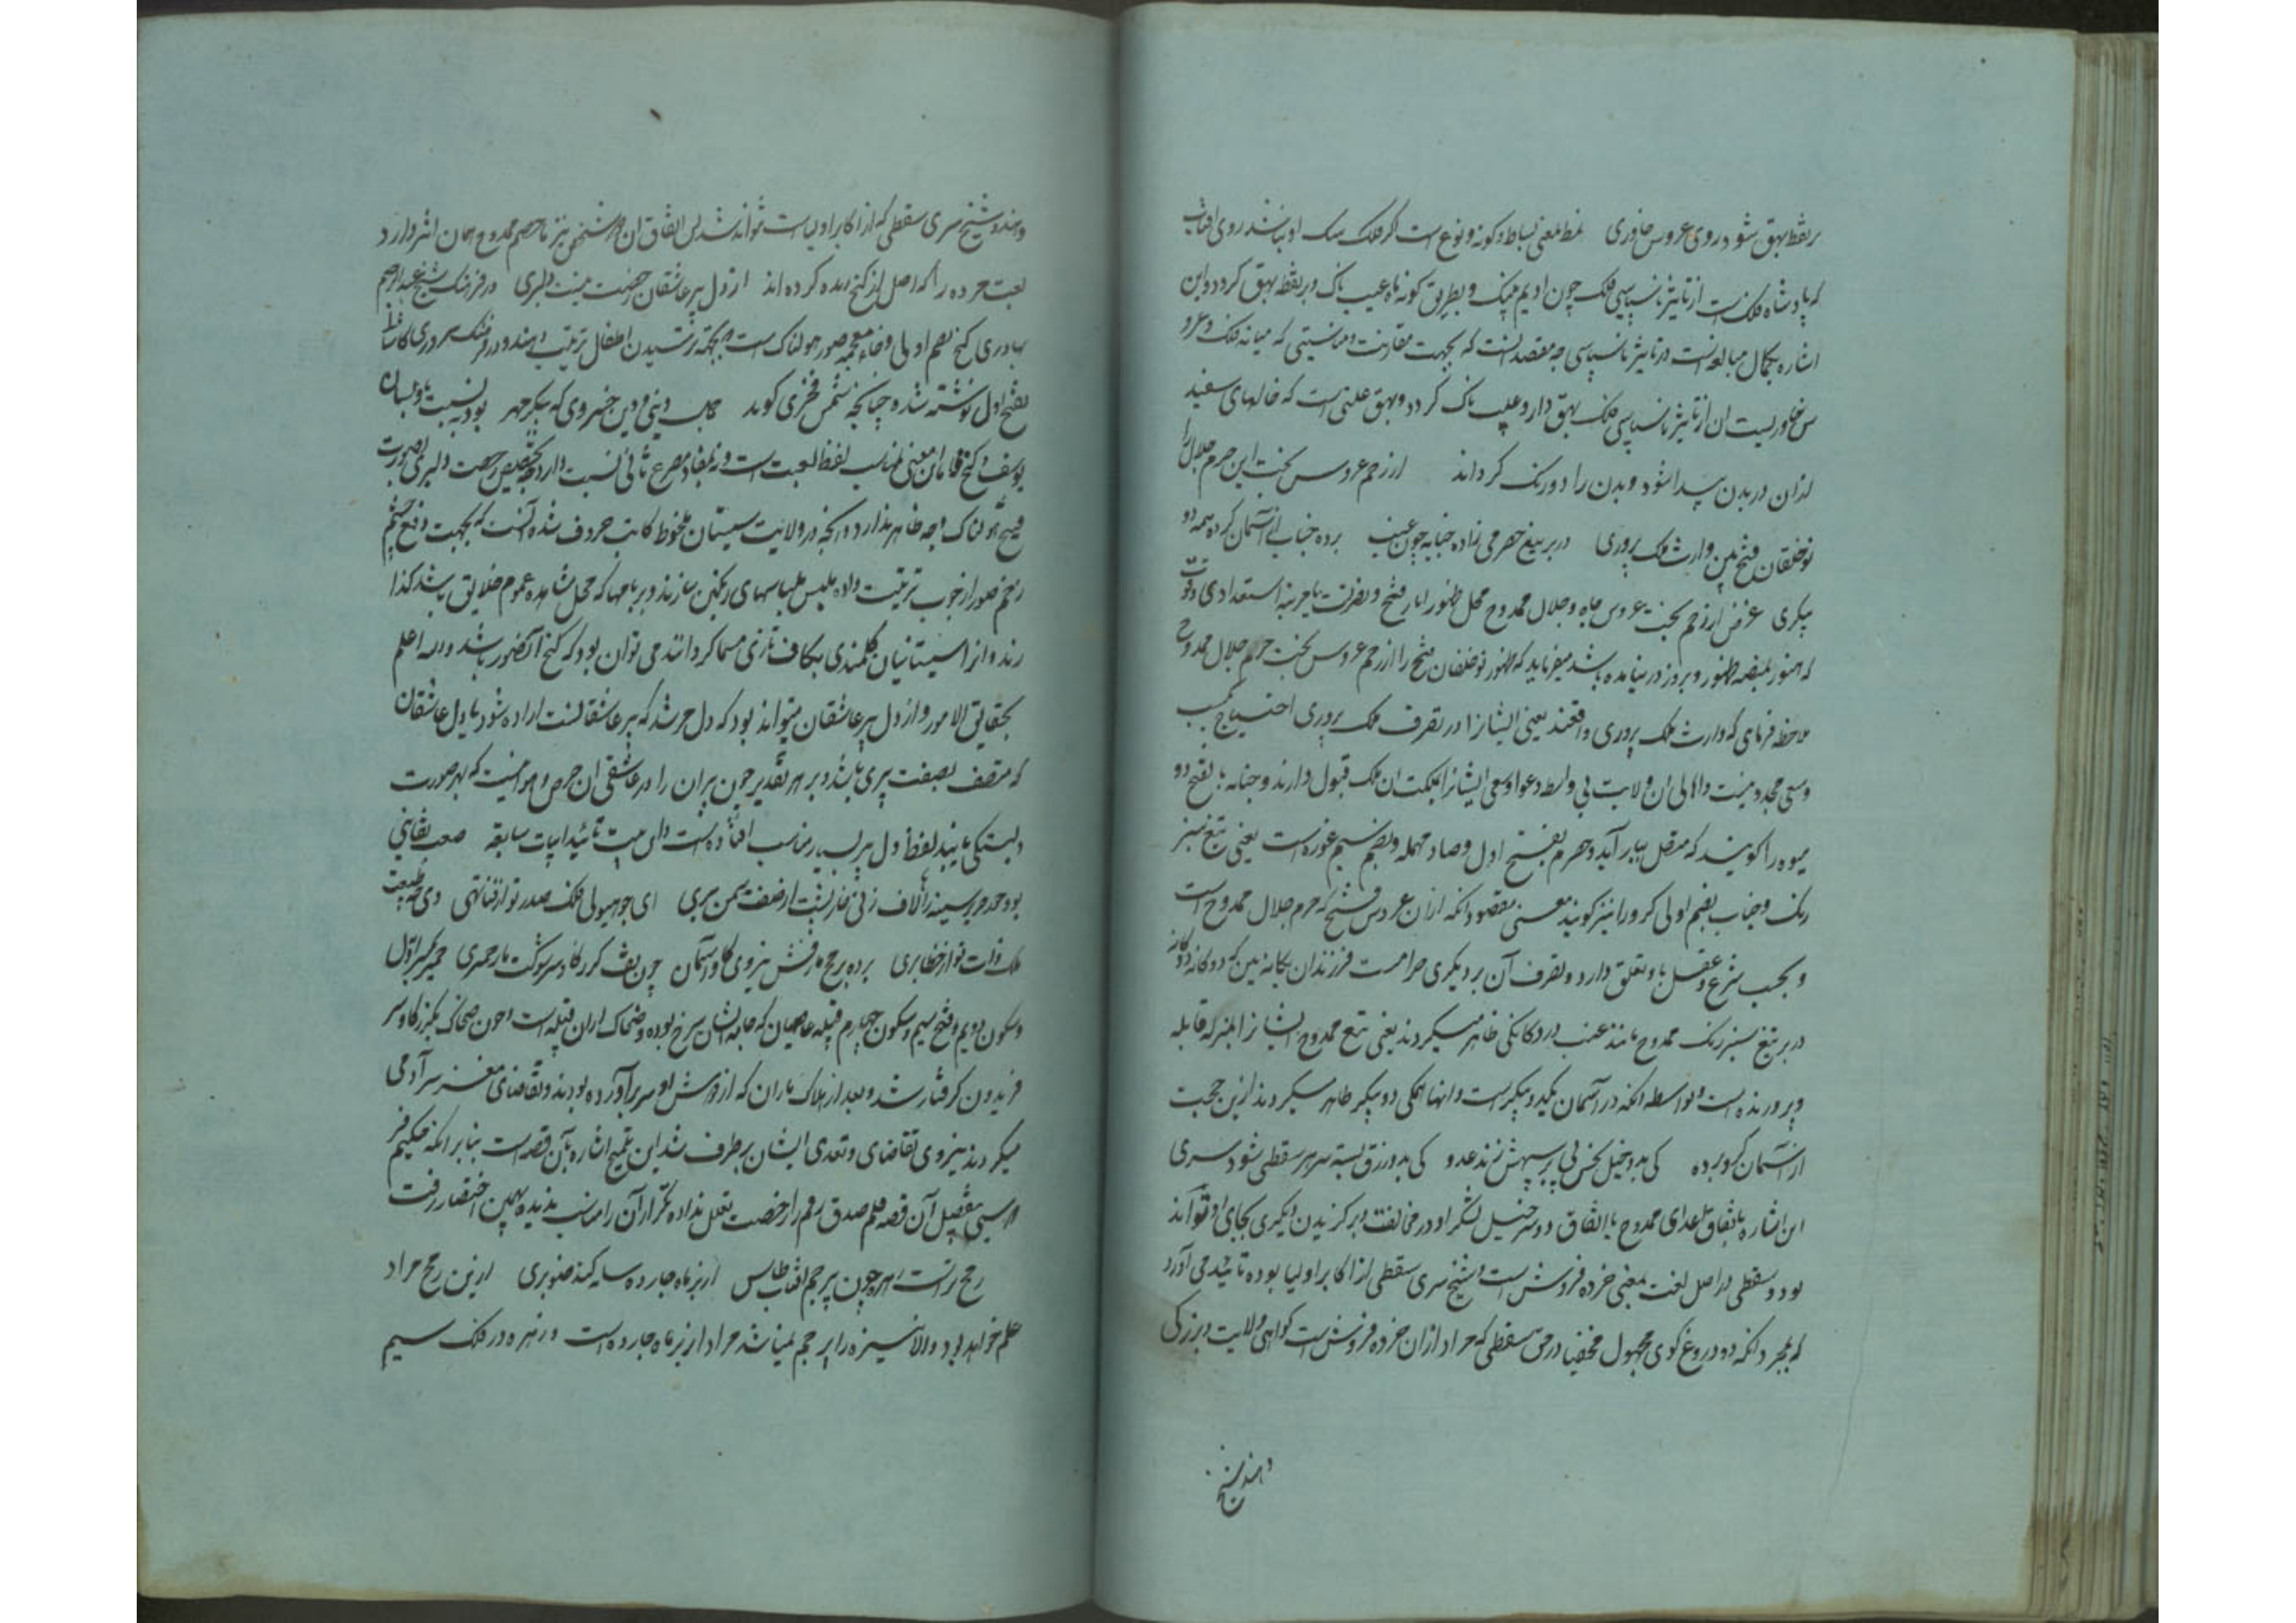 بر نقط بهق شود روی عروس خاوری نمط بمعنی بساط و کونه و نوع است اکر فلک نمک او نباشد روی افتاب
که پادشاه فلک است از تاثیر ناسپاسی فلک چون ادیم پیک و بطریق کونه ماه عیب ناک و بر نقط بهق کردد و این
اشاره بکمال مبالغه است در تاثیر ناسپاسی چه مقصد انست که بجهت مقارنت و مناسبتی که میانه فلک و عرو
س خاوریست ان از تاثیر ناسپاسی فلک بهق دار و عیب ناک کردد و بهق علتی است که خالهای سفید
از ان در بدن پیدا شود و بدن را دو رنک کرداند از رحم عروس بخت این حرم جلال را
نوخلقان فتح بین وارث ملک پروری در بر تیغ حصرمی زاده جنابه چون عنب برده جنابی از آسمان کرده همه دو
پیکری غرض از رحم بخت عروس جاه و جلال ممدوح محل ظهور اثار فتح و نصرتست یا مرتبه استعدادی ذوت
که هنوز بمنصه ظهور و بروز در نیامده باشد میفرماید که ظهور نوخلقان فتح را از رحم عروس بخت حرم جلال ممدوح
ملاحظه فرمای که وارث ملک پروری واقعند یعنی ایشانرا در تصرف ملک پروری احتیاج بکسب
و سعی مجدد نیست و اهالی ان ولایت بی واسطه دعوا و سعی ایشانرا بملکت ان ملک قبول دارند و جنابه بفتح دو
میوه را کویند که متصل ببار آید و حصرم بفتح اول و صاد مهمله و بضم سیم غوره است یعنی تیغ سبز
رنک و جناب بضم اولی کرو را نیز کویند معنی مقصود انکه از ان عروس فتح که حرم جلال ممدوح است
و بحسب شرع و عقل باو تعلق دارد و تصرف آن بر دیکری حرامست فرزندان یکانه بین که دوکانه دوکانه
در بر تیغ سبز رنک ممدوح مانند عنب در دوکانکی ظاهر میکردند یعنی تیغ ممدوح ایشانرا بمنزله قابله
و پرورنده است و بواسطه انکه در آسمان یک دو پیکر است و انها همکی دو پیکر ظاهر میکردند ازین جهت
از آسمان کرو برده کی بدو خیل نحس پی بر سپهش زند عدو کی بدو رزق بسته سر هر سقطی شود سری
این اشاره باتفاق اعدای ممدوح با اتفاق دو سر خیل لشکر او در مخالفت و بر کزیدن دیکری بجای او تواند
بود و سقطی در اصل لغت بمعنی خرده فروش است و شیخ سری سقطی از اکابر اولیا بوده تائید می آورد
که بمجرد انکه ده دروغ کوی مجهول مخفیا در حق سقطی که مراد از ان خرده فروش است کواهی ولایت و بزرکی
دهند شیخ
دهند و شیخ سری سقطی که از اکابر اولیاست تواند شد پس اتفاق ان دو شخص نیز با خصم ممدوح همان اثر دارد
لعبت مرده را که اصل از کنخ زنده کرده اند از دل پیر عاشقان رخصت نیست دلبری در فرهنک شیخ عبدالرحیم
بهادری کنخ بضم اولی و خاء معجمه صور هولناک است که بجهته ترسیدن اطفال ترتیب دهند و در فرهنک سروری کاشانی
بفتح اول نوشته شده و چنانچه شمس فخری کوید جمال دینی و دین خسروی که پیکر مهر بود به نسبت با او بسان
یوسف و کنخ فاما این معنی مناسب لفظ لعبت است و نه بمفاد مصرع ثانی نسبت دارد چه تخصیص رخصت دلبری بصورت
قبیح هولناک وجه ظاهر ندارد و انچه در ولایت سیستان ملحوظ کاتب حروف شده آنست که بجهت دفع چشم
زخم صور از خوب ترتیب داده ملبس بلباسهای رنکین سازند و بر بامها که محل مشاهده عموم خلایق باشد کذا
رند و آنرا سیستانیان کلمندی بکاف تازی مسما کردانند می توان بود که کنخ آنصور باشد والله اعلم
بحقایق الامور و از دل پیر عاشقان میتواند بود که دل مرشد که پیر عاشقانست اراده شود یا دل عاشقان
که متصف بصفت پیری باشد و بر هر تقدیر چون پیران را در عاشقی ان حرص و هوا نیست که بهر صورت
دلبستکی یابند لفظ دل پیر بسیار مناسب افتاده است و این بیت تائید ابیات سابقه صعب بقایتی
بود حد حریر سینه را لاف زنی خار پشت از صفت سمن بری ای چو هیولی فلک صدر تو از فنا تهی وی چو طبیعت
ملک ذات تو از خطا بری برده برمح مار فش نیروی کاو آسمان چون نف کرز کاو سر شوکت مار حمیری حمیر بکسر اول
و سکون دویم و فتح سیم و سکون چهارم قبیله عاصیان که جامه ایشان سرخ بوده و ضحاک از ان قبیله است و چون ضحاک بکرز کاو سر
فریدون کرفتار شد و بعد از هلاک ماران که از دوش او سر برآورده بودند و تقاضای مغز سر آدمی
میکردند نیروی تقاضای و تعدی ایشان برطرف شد این تلمیح اشاره بآن قصه است بنابر انکه حکیم فر
دوسی بتفصیل آن قصه قلم صدق رقم را رخصت تعلل نداده تکرار آن را مناسب ندیده بهمین اختصار رفت
رمح تراست زهره چون پرچم افتاب طاس از بر ماه چارده سایه کند صنوبری ازین رمح مراد
علم خواهد بود والا نیزه را پرچم نمیباشد مراد از بر ماه چارده است و زهره در فلک سیم